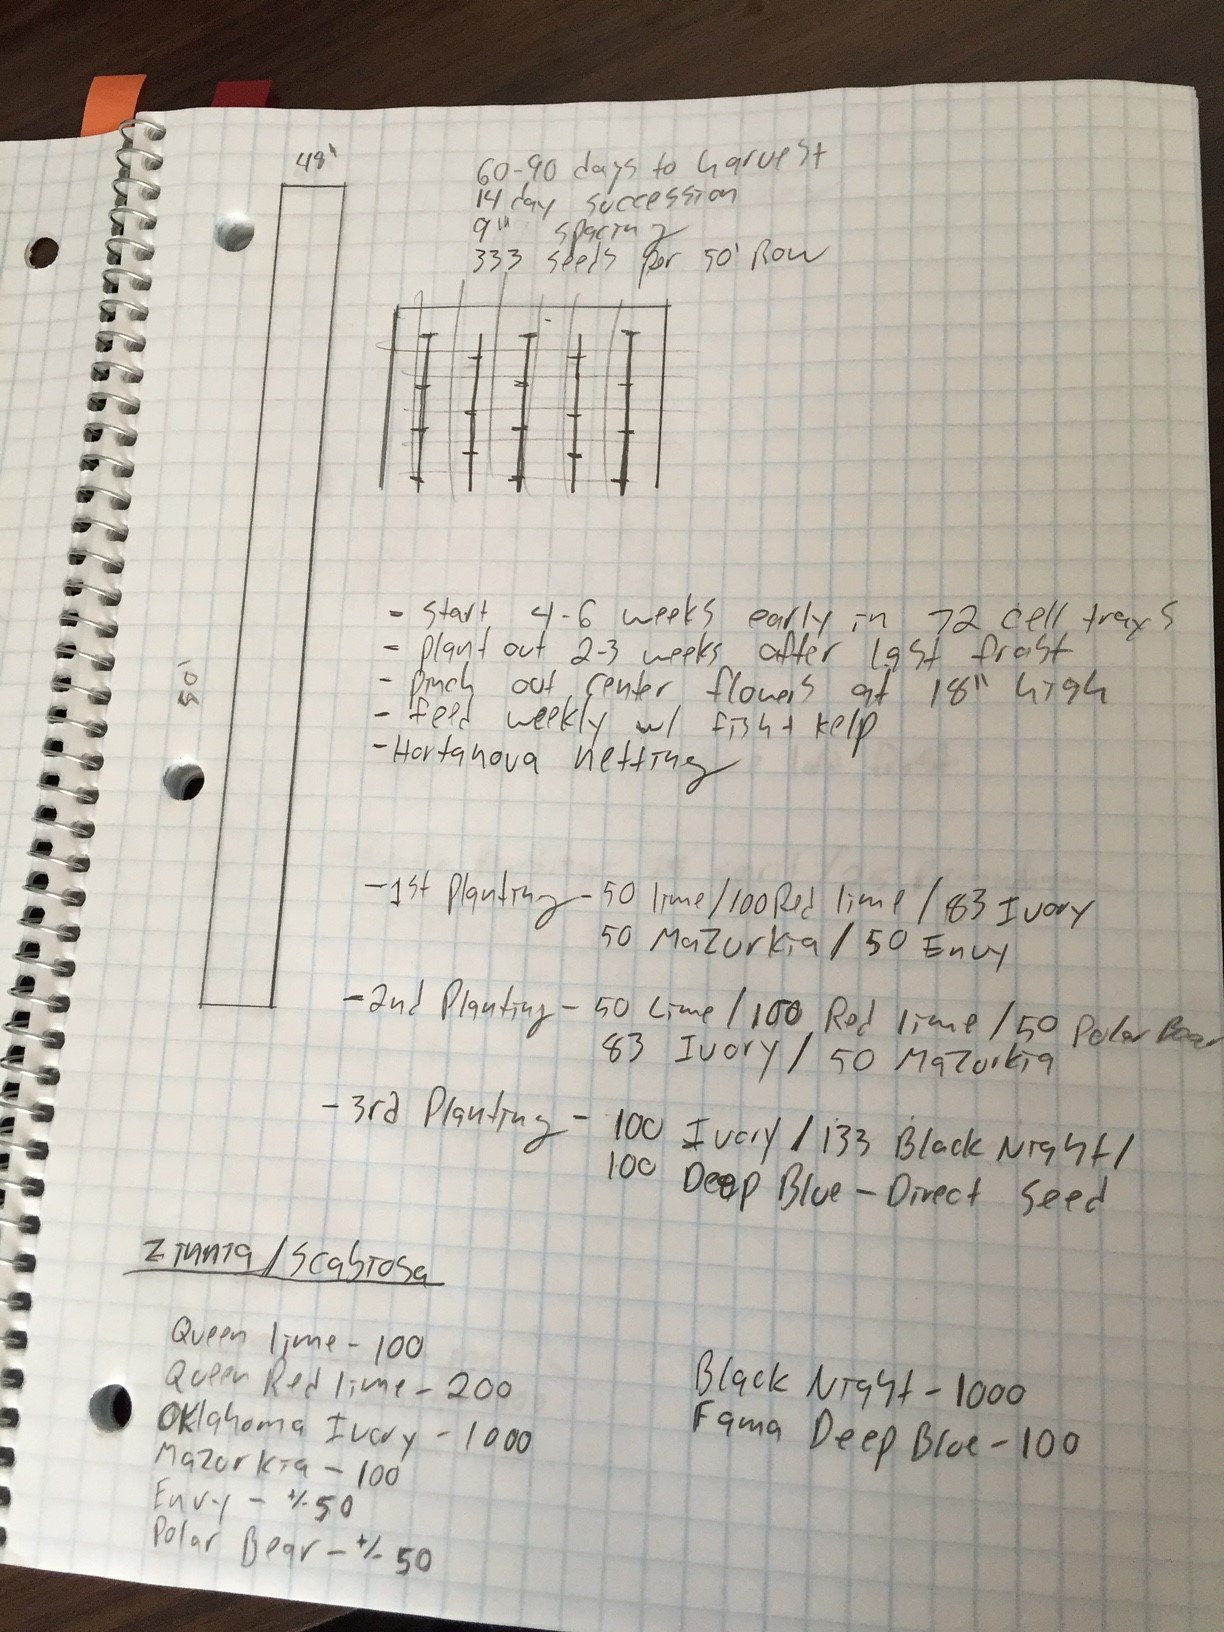 48"
60-90 days to harvest
14 day succession
9" spacing
333 seeds per 50' Row
50'
- start 4-6 weeks early in 72 cell trays
- plant out 2-3 weeks after last frost
- pinch out center flowers at 18" high
- feed weekly w/ fish + kelp
- Hortanova netting
- 1st Planting - 50 lime / 100 Red lime / 83 Ivory
50 Mazurkia / 50 Envy
- 2nd Planting - 50 Lime / 100 Red lime / 50 Polar Bear
83 Ivory / 50 Mazurkia
- 3rd Planting - 100 Ivory / 133 Black Night /
100 Deep Blue - Direct Seed
Zinnia / Scabiosa
Queen lime - 100
Queen Red lime - 200
Oklahoma Ivory - 1000
Mazurkia - 100
Envy - +/- 50
Polar Bear - +/- 50
Black Night - 1000
Fama Deep Blue - 100